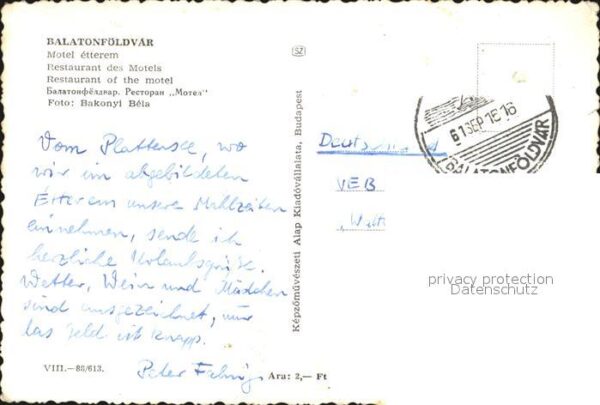 BALATONFÖLDVÁR
Motel étterem
Restaurant des Motels
Restaurant of the motel
Балатонфёлдвар. Ресторан „Мотел"
Foto: Bakonyi Béla
Vom Plattensee, wo
wir im abgebildeten
Étterem unsere Mahlzeiten
einnehmen, sende ich
herzliche Urlaubsgrüße.
Wetter, Wein und Mädchen
sind ausgezeichnet, nur
das Geld ist knapp.
Peter
VIII.—83/613.
Ara: 2,— Ft
Képzőművészeti Alap Kiadóvállalata, Budapest
SZ
61 SEP 15 16
BALATONFÖLDVÁR
VEB
privacy protection
Datenschutz